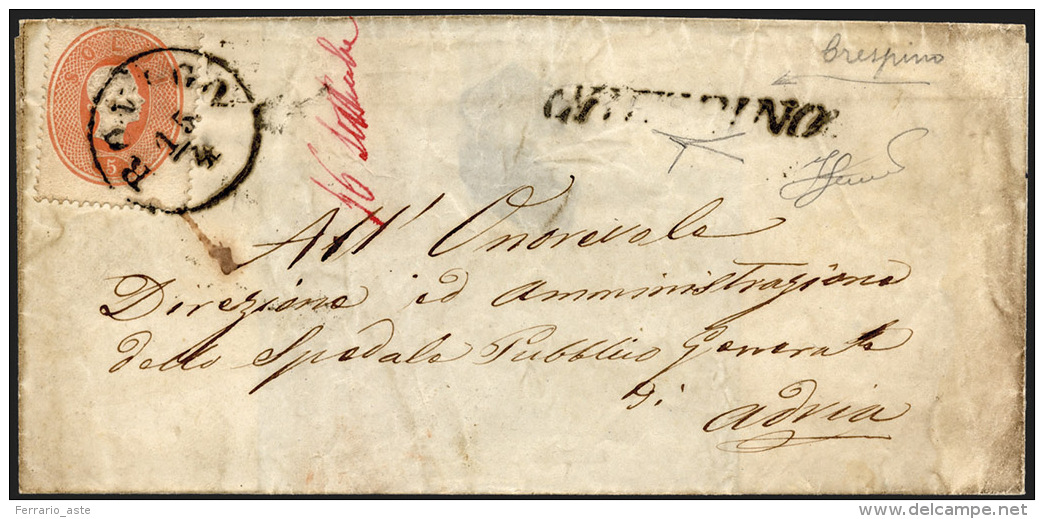 Crespino
ROVIGO
15
4
5
CRESPINO
All' Onorevole
Direzione ed Amministrazione
dello Spedale Pubblico Generale
di
Adria
Ferrario_aste
www.delcampe.net